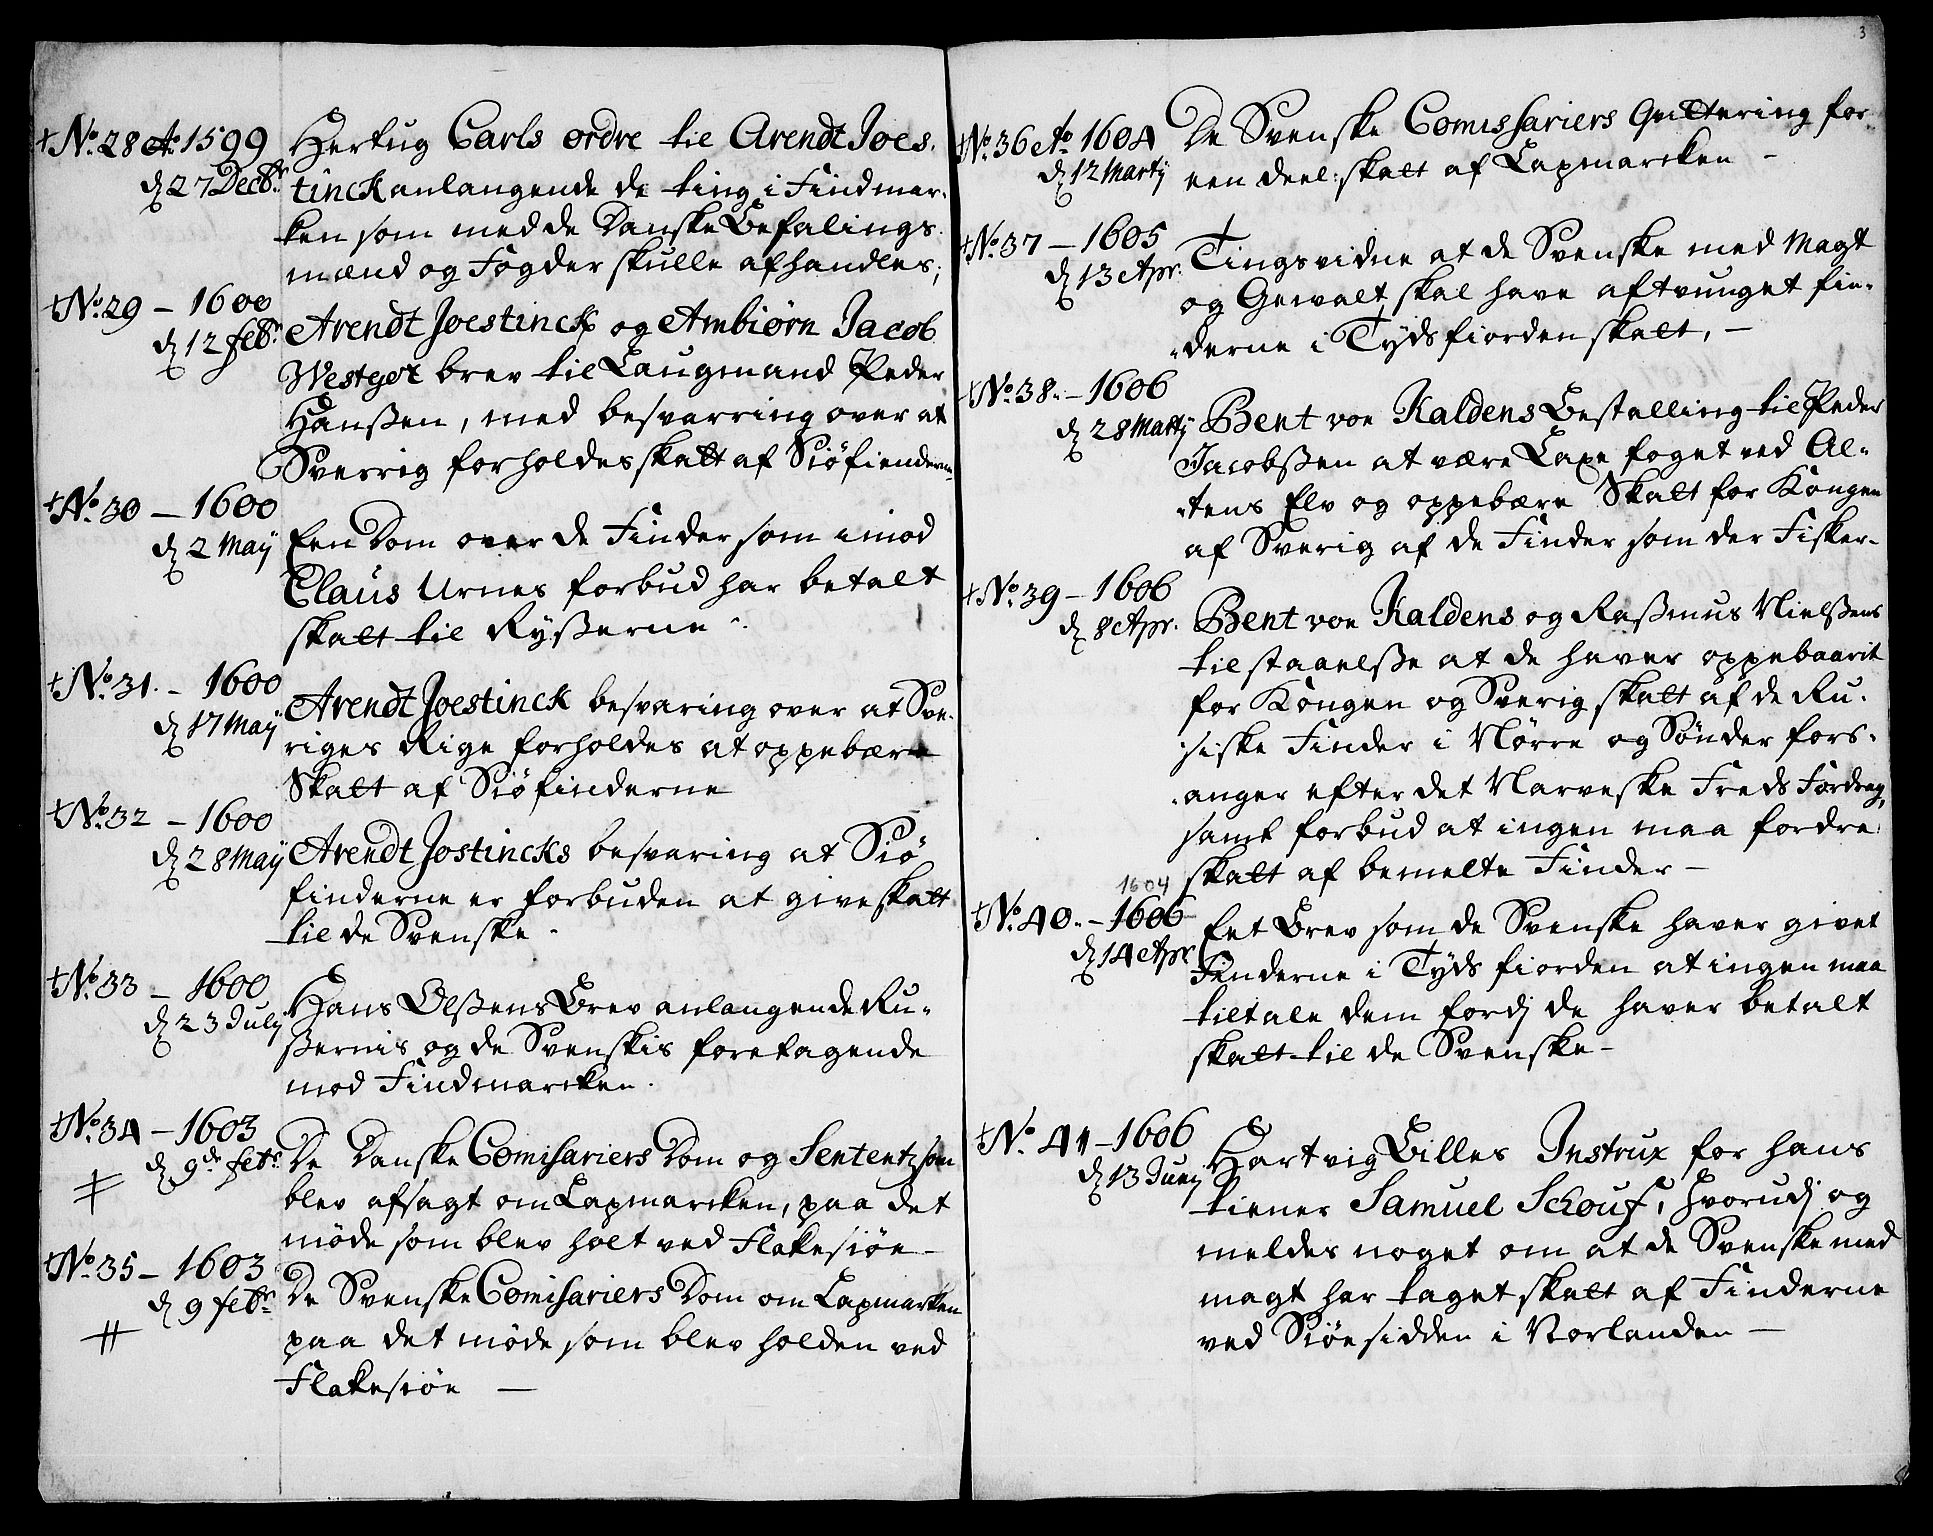 +No. 28 Ao. 1599
d. 27 Decbr.
Hertug Carls ordre til Arendt Joes-
tinck anlangende de ting i Findmar-
ken som med de Danske Befalings
mænd og Fogder skulle afhandles;
+No. 29 – 1600
d. 12 febr.
Arendt Joestinck og Ambiørn Jacob
Westger brev til Laugmand Peder
Hanßen, med besvarring over at
Sverrig forholdes skatt af Siøfienderne
+No. 30 – 1600
d. 2 Maÿ
Een Dom over de Finder som imod
Claus Urnes forbud har betalt
skatt til Ryßerne.
+No. 31. – 1600
d. 17 Maÿ
Arendt Joestinck besvaring over at Sve-
riges Rige forholdes at oppebære
Skatt af Siøfinderne
+No. 32 – 1600
d. 28 Maÿ
Arendt Jostincks besvaring at Siø
finderne er forbuden at give skatt
til de Svenske.
+No. 33 – 1600
d. 23 July
Hans Olßens Brev anlangende Ru-
ßernis og de Svenskis foretagende
mod Findmarcken.
+No. 34 – 1603
d. 9de febr.
De Danske Comisariers Dom og Sententz som
blev afsagt om Lapmarcken, paa det
møde som blev holt ved Flakesiøe –
+No. 35 – 1603
d. 9 febr.
De Svenske Comisariers Dom om Lapmarken
paa det møde som blev holden ved
Flakesiøe –
3
+No. 36 Ao. 1604
d. 12 Martij
De Svenske Comissariers Qvittering for
een deel: skatt af Lapmarcken –
+No. 37 – 1605
d. 13 Apr.
Tingsvidne at de Svenske med Magt
og Gewalt skal have aftvunget fin-
-derne i Tydsfiorden skatt, –
+No. 38. – 1606
d. 28 Martij
Bent von Kaldens Bestalling til Peder
Jacobßen at være Laxe foget ved Al-
-tens Elv og oppebære Skatt for Kongen
af Sverig af de Finder som der Fisker-
+No. 39 – 1606
d. 8 Apr.
Bent von Kaldens og Raßmus Nielßens
tilstaaelße at de haver oppebaarit
for Kongen og Sverig skatt af de Ru-
-siske Finder i Nørre og Sønder fors-
-anger efter det Narveske Freds Fordrag,
samt forbud at ingen maa fordre
skatt af bemelte Finder –
1604
+No. 40. – 1606
d. 14 Apr.
Eet Brev som de Svenske haver givet
Finderne i Tyds fiorden at ingen maa
tiltale dem fordj de haver betalt
skatt til de Svenske –
+No. 41 – 1606
d. 13 Junij
Hartvig Billes Instrux for hans
tiener Samuel Schouf, hvorudj og
meldes noget om at de Svenske med
magt har taget skatt af Finderne
ved Siøesidden i Norlanden –